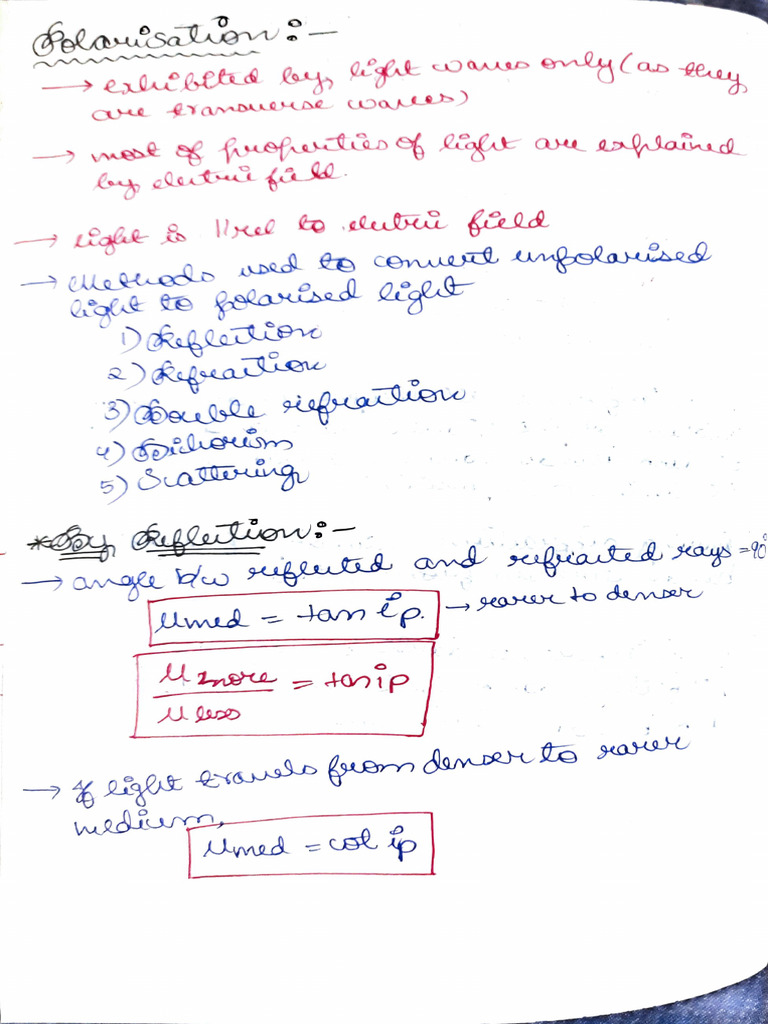 Polarisation :-
→ exhibited by light waves only (as they
are transverse waves)
→ most of properties of light are explained
by electric field.
→ light is 11rel to electric field
→ Methods used to convert unpolarised
light to polarised light
1) Reflection
2) Refraction
3) Double refraction
4) Dichorism
5) Scattering
*By Reflection :-
→ angle b/w reflected and refracted rays = 90°
μmed = tan ip. → rarer to denser
μ more / μ less = tan ip
→ If light travels from denser to rarer
medium,
μmed = cot ip